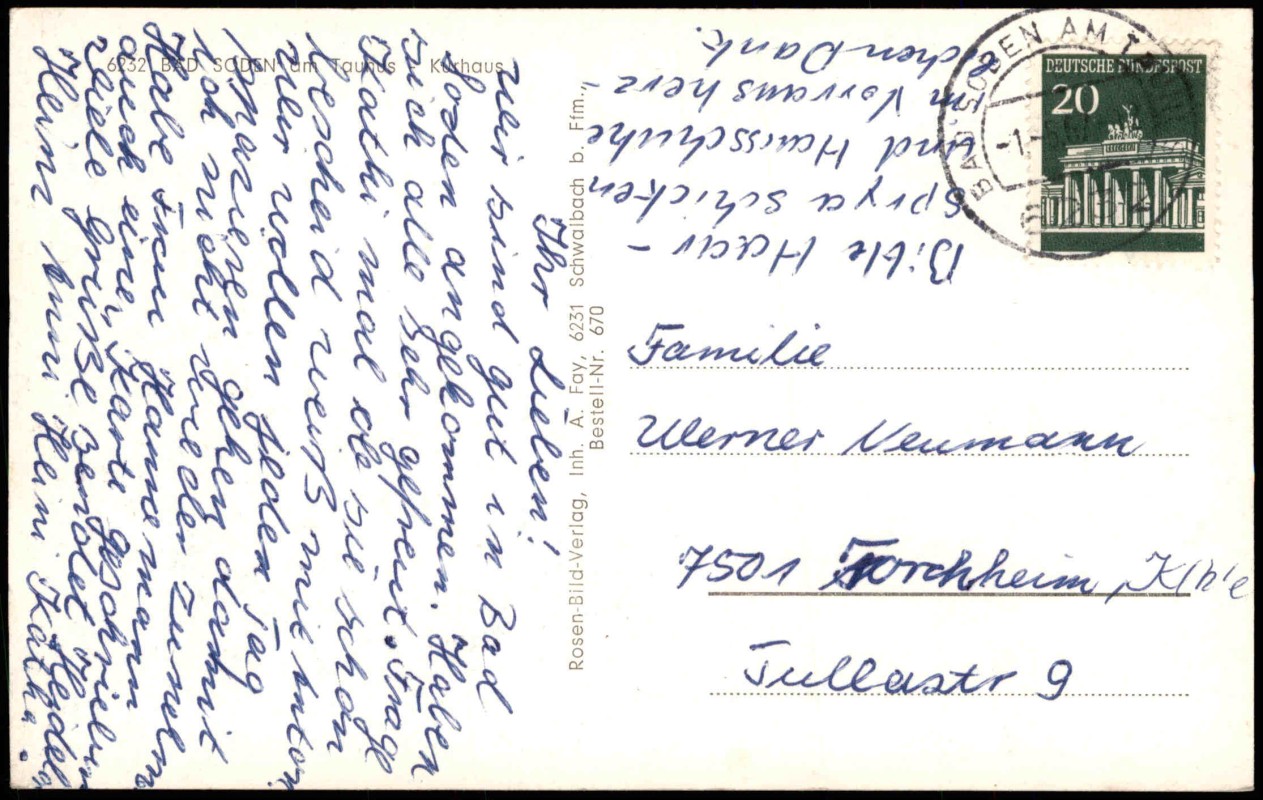 6232 BAD SODEN am Taunus Kurhaus
Ihr Lieben!
wir sind gut in Bad
Soden angekommen. Haben
sich alle sehr gefreut. Frage
Kathi mal ob sie schon
bescheid weiß mit Anton
wir wollen jeden Tag
spazieren gehen damit
ich nicht wieder
Habe Frau Hanemann
auch eine Karte geschrieben
viele Grüße sendet
Heini Kath.
Rosen-Bild-Verlag, Inh. A. Fay, 6231 Schwalbach b. Ffm.,
Bestell-Nr. 670
Bitte Haar-
spray schicken
und Hausschuhe
im Vorraus herz-
lichen Dank.
BAD SODEN AM TAUNUS
DEUTSCHE BUNDESPOST
20
Familie
Werner Neumann
7501 Forchheim Klh'e
Tullastr 9